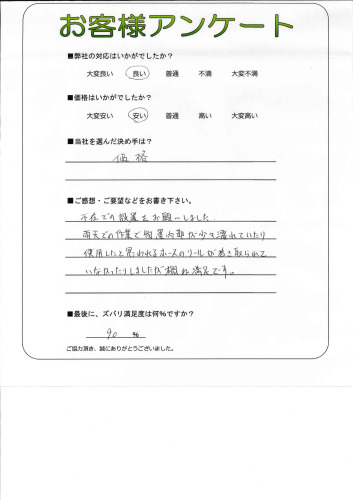 お客様アンケート
■弊社の対応はいかがでしたか？
大変良い 良い 普通 不満 大変不満
■価格はいかがでしたか？
大変安い 安い 普通 高い 大変高い
■当社を選んだ決め手は？
価格
■ご感想・ご要望などをお書き下さい。
不在での設置をお願いしました。
雨天での作業で物置内部が少々濡れていたり
使用したと思われるホースのリールが巻き取られて
いなかったりしましたが概ね満足です。
■最後に、ズバリ満足度は何%ですか？
90 %
ご協力頂き、誠にありがとうございました。